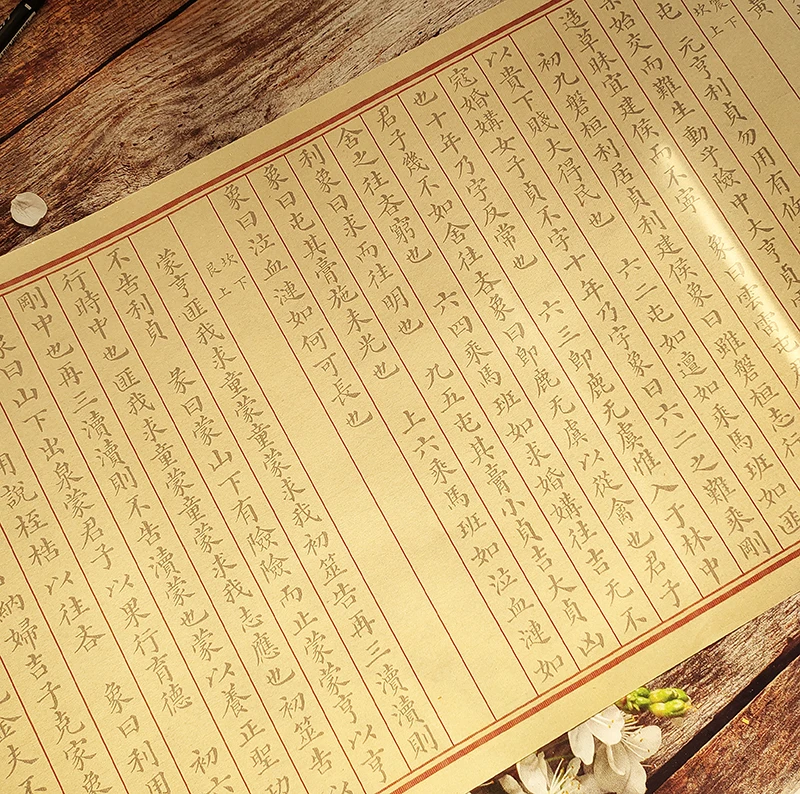 黃
坎上震下
屯 元亨利貞勿用有攸
始交而難生動乎險中大亨貞
造草昧宜建侯而不寧 象曰雲雷屯
初九磐桓利居貞利建侯象曰雖磐桓志行
以貴下賤大得民也 六二屯如邅如乘馬班如匪
寇婚媾女子貞不字十年乃字象曰六二之難乘剛
也十年乃字反常也 六三即鹿无虞惟入于林中
君子幾不如舍往吝象曰即鹿无虞以從禽也君子
舍之往吝窮也 六四乘馬班如求婚媾往吉无不
利象曰求而往明也 九五屯其膏小貞吉大貞凶
象曰屯其膏施未光也 上六乘馬班如泣血漣如
象曰泣血漣如何可長也
坎下艮上
蒙亨匪我求童蒙童蒙求我初筮告再三瀆瀆則
不告利貞 彖曰蒙山下有險險而止蒙蒙亨以亨
行時中也匪我求童蒙童蒙求我志應也初筮告以
剛中也再三瀆瀆則不告瀆蒙也蒙以養正聖功
象曰山下出泉蒙君子以果行育德 初六
用說桎梏以往吝 象曰利用
納婦吉子克家象
金夫不